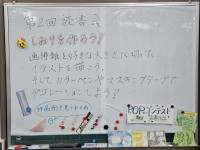 第2回 読書会
しおりを作ろう!
画用紙を好きな大きさに切って、
イラストを描こう。
そして、カラーペンやマスキングテープで
デコレーションしよう!
POPコンテスト